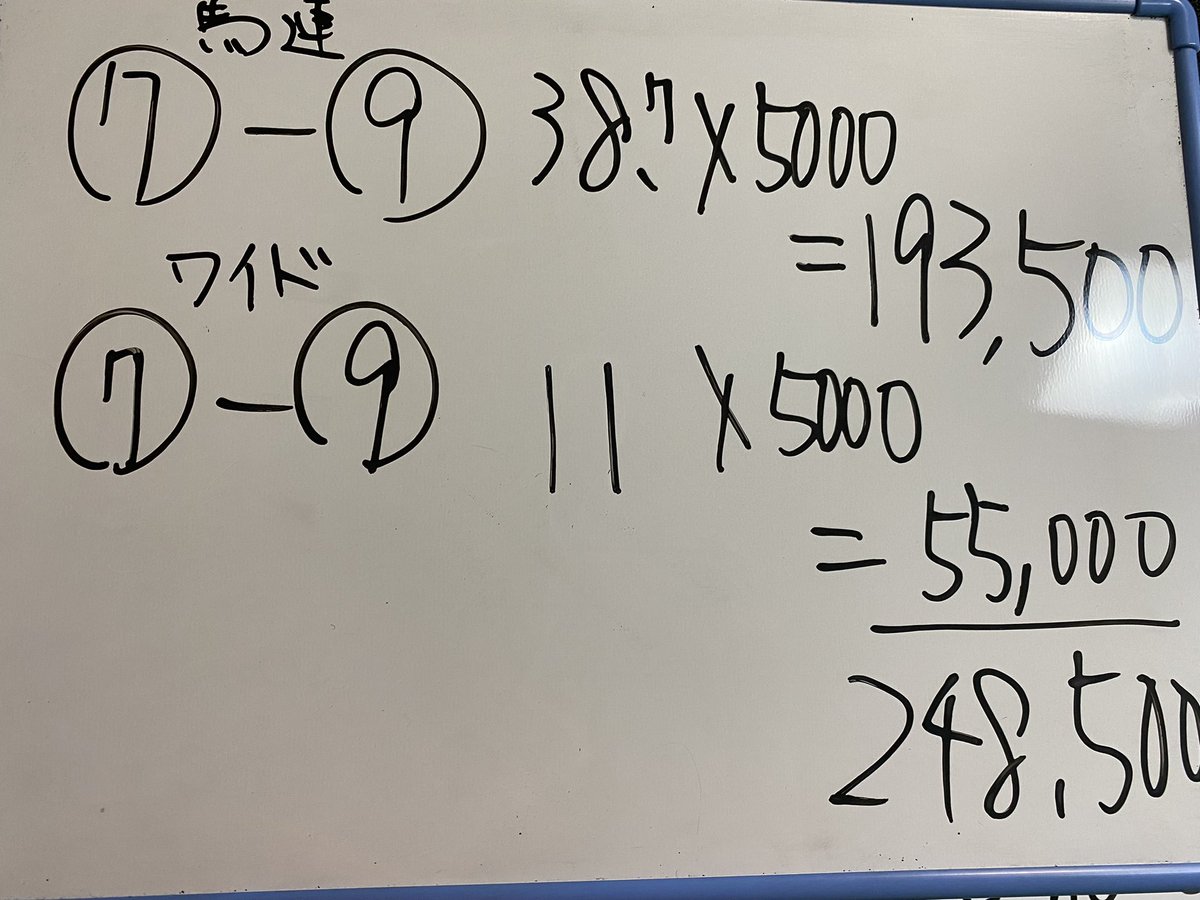 馬連
⑦ー⑨ 38.7 × 5000
=193,500
ワイド
⑦ー⑨ 11 × 5000
= 55,000
248,500